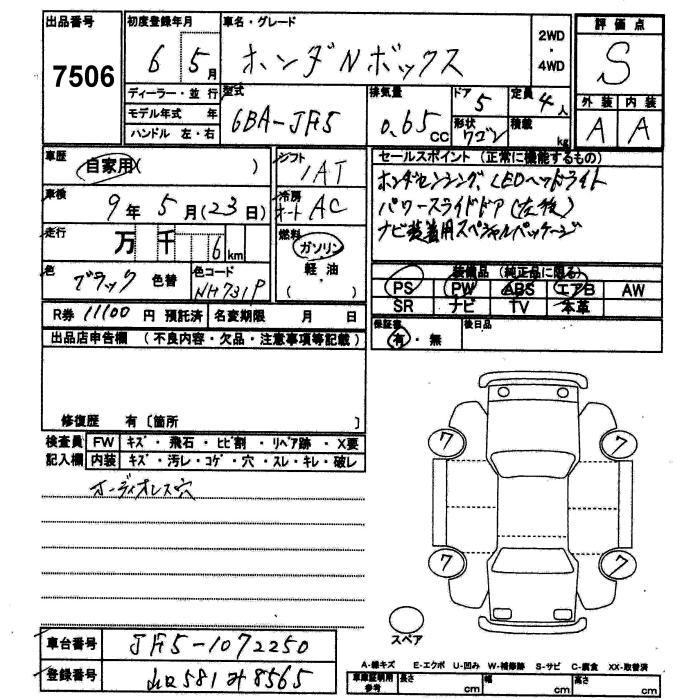 出品番号 7506
初度登録年月 6 5月
車名・グレード ホンダ Nボックス
2WD・4WD
評価点 S
外装 A 内装 A
ディーラー・並行
モデル年式 年
ハンドル 左・右
型式 6BA-JF5
排気量 0.65 CC
ドア 5
形状 ワゴン
定員 4人
積載 kg
車歴 自家用( )
車検 9年 5月(23日)
走行 万 千 6 km
色 ブラック 色替
色コード NH731P
シフト IAT
冷房 オート AC
燃料 ガソリン 軽油 ( )
セールスポイント(正常に機能するもの)
ホンダセンシング、LEDヘッドライト
パワースライドドア(左後)
ナビ装着用スペシャルパッケージ
装備品(純正品に限る)
PS PW ABS エアB AW
SR ナビ TV 本革
R券 11100 円 預託済 名変期限 月 日
保証書 有・無
後日品
出品店申告欄(不良内容・欠品・注意事項等記載)
修復歴 有〔箇所 〕
検査員記入欄
FW キズ・飛石・ヒビ割・リペア跡・X要
内装 キズ・汚レ・コゲ・穴・スレ・キレ・破レ
オーディオレス穴
7 7
7 7
スペア
車台番号 JF5-1072250
登録番号 581 み 8565
A-線キズ E-エクボ U-凹み W-補修跡 S-サビ C-腐食 XX-取替済
車庫証明用参考 長さ cm 幅 cm 高さ cm